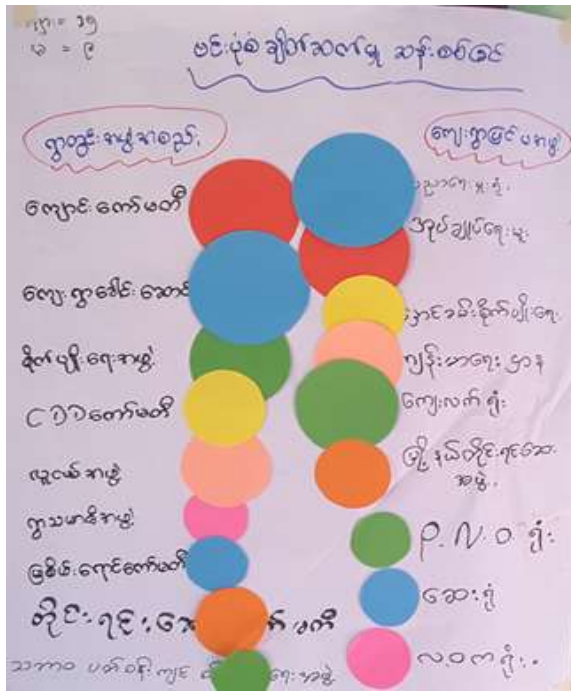 ကျား = ၁၅
မ = ၉
ဗင်းပုံစံချိတ်ဆက်မှု ဆန်းစစ်ခြင်း
ရွာတွင်းအဖွဲ့အစည်း
ကျောင်းကော်မတီ
ကျေးရွာခေါင်းဆောင်
စိုက်ပျိုးရေးအဖွဲ့
CDD ကော်မတီ
လူငယ်အဖွဲ့
ရွာသမာဓိအဖွဲ့
မြစိမ်းရောင်ကော်မတီ
တိုင်းရင်း
သဘာဝ ပတ်ဝန်းကျင် ရေးအဖွဲ့
ကျေးရွာပြင်ပအဖွဲ့
အုပ်ချုပ်ရေးမှူး
ကျန်းမာရေးဌာန
ကျေးလက်ရုံး
မြို့နယ်တိုင်းရင်းဆေး
အဖွဲ့
ဆေးရုံ
လဝကရုံး